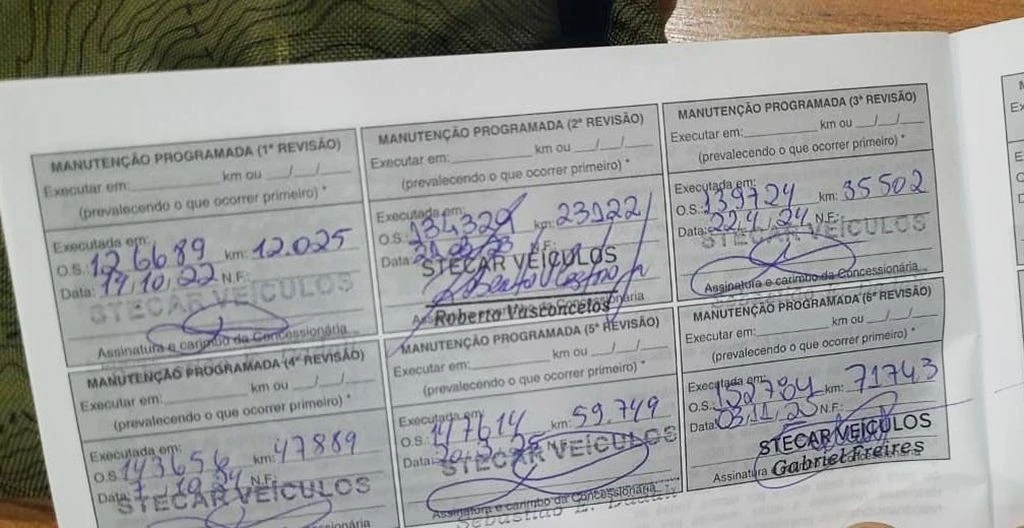 MANUTENÇÃO PROGRAMADA (1ª REVISÃO)
Executar em:__________ km ou __/__/__
(prevalecendo o que ocorrer primeiro) *
Executada em:
O.S.: 126689 km: 12.025
Data: 19,10,22 N.F.:
STECAR VEÍCULOS
Assinatura e carimbo da Concessionária
MANUTENÇÃO PROGRAMADA (2ª REVISÃO)
Executar em:__________ km ou __/__/__
(prevalecendo o que ocorrer primeiro) *
Executada em:
O.S.: 134329 km: 23122
Data N.F.:
STECAR VEÍCULOS
Roberto Vasconcelos
MANUTENÇÃO PROGRAMADA (3ª REVISÃO)
Executar em:__________ km ou __/__/__
(prevalecendo o que ocorrer primeiro) *
Executada em:
O.S.: 139724 km: 35502
Data: 22,4,24 N.F.:
STECAR VEÍCULOS
Assinatura e carimbo da Concessionária
MANUTENÇÃO PROGRAMADA (4ª REVISÃO)
Executar em:__________ km ou __/__/__
(prevalecendo o que ocorrer primeiro) *
Executada em:
O.S.: 143656 km: 47889
Data N.F.:
STECAR VEÍCULOS
MANUTENÇÃO PROGRAMADA (5ª REVISÃO)
Executar em:__________ km ou __/__/__
(prevalecendo o que ocorrer primeiro) *
Executada em:
O.S.: 147614 km: 59.749
Data:
STECAR VEÍCULOS
Assinatura e carimbo da Concessionária
MANUTENÇÃO PROGRAMADA (6ª REVISÃO)
Executar em:__________ km ou __/__/__
(prevalecendo o que ocorrer primeiro) *
Executada em:
O.S.: 152784 km: 71743
Data: 03,11,25 N.F.:
STECAR VEÍCULOS
Assinatura Gabriel Freires